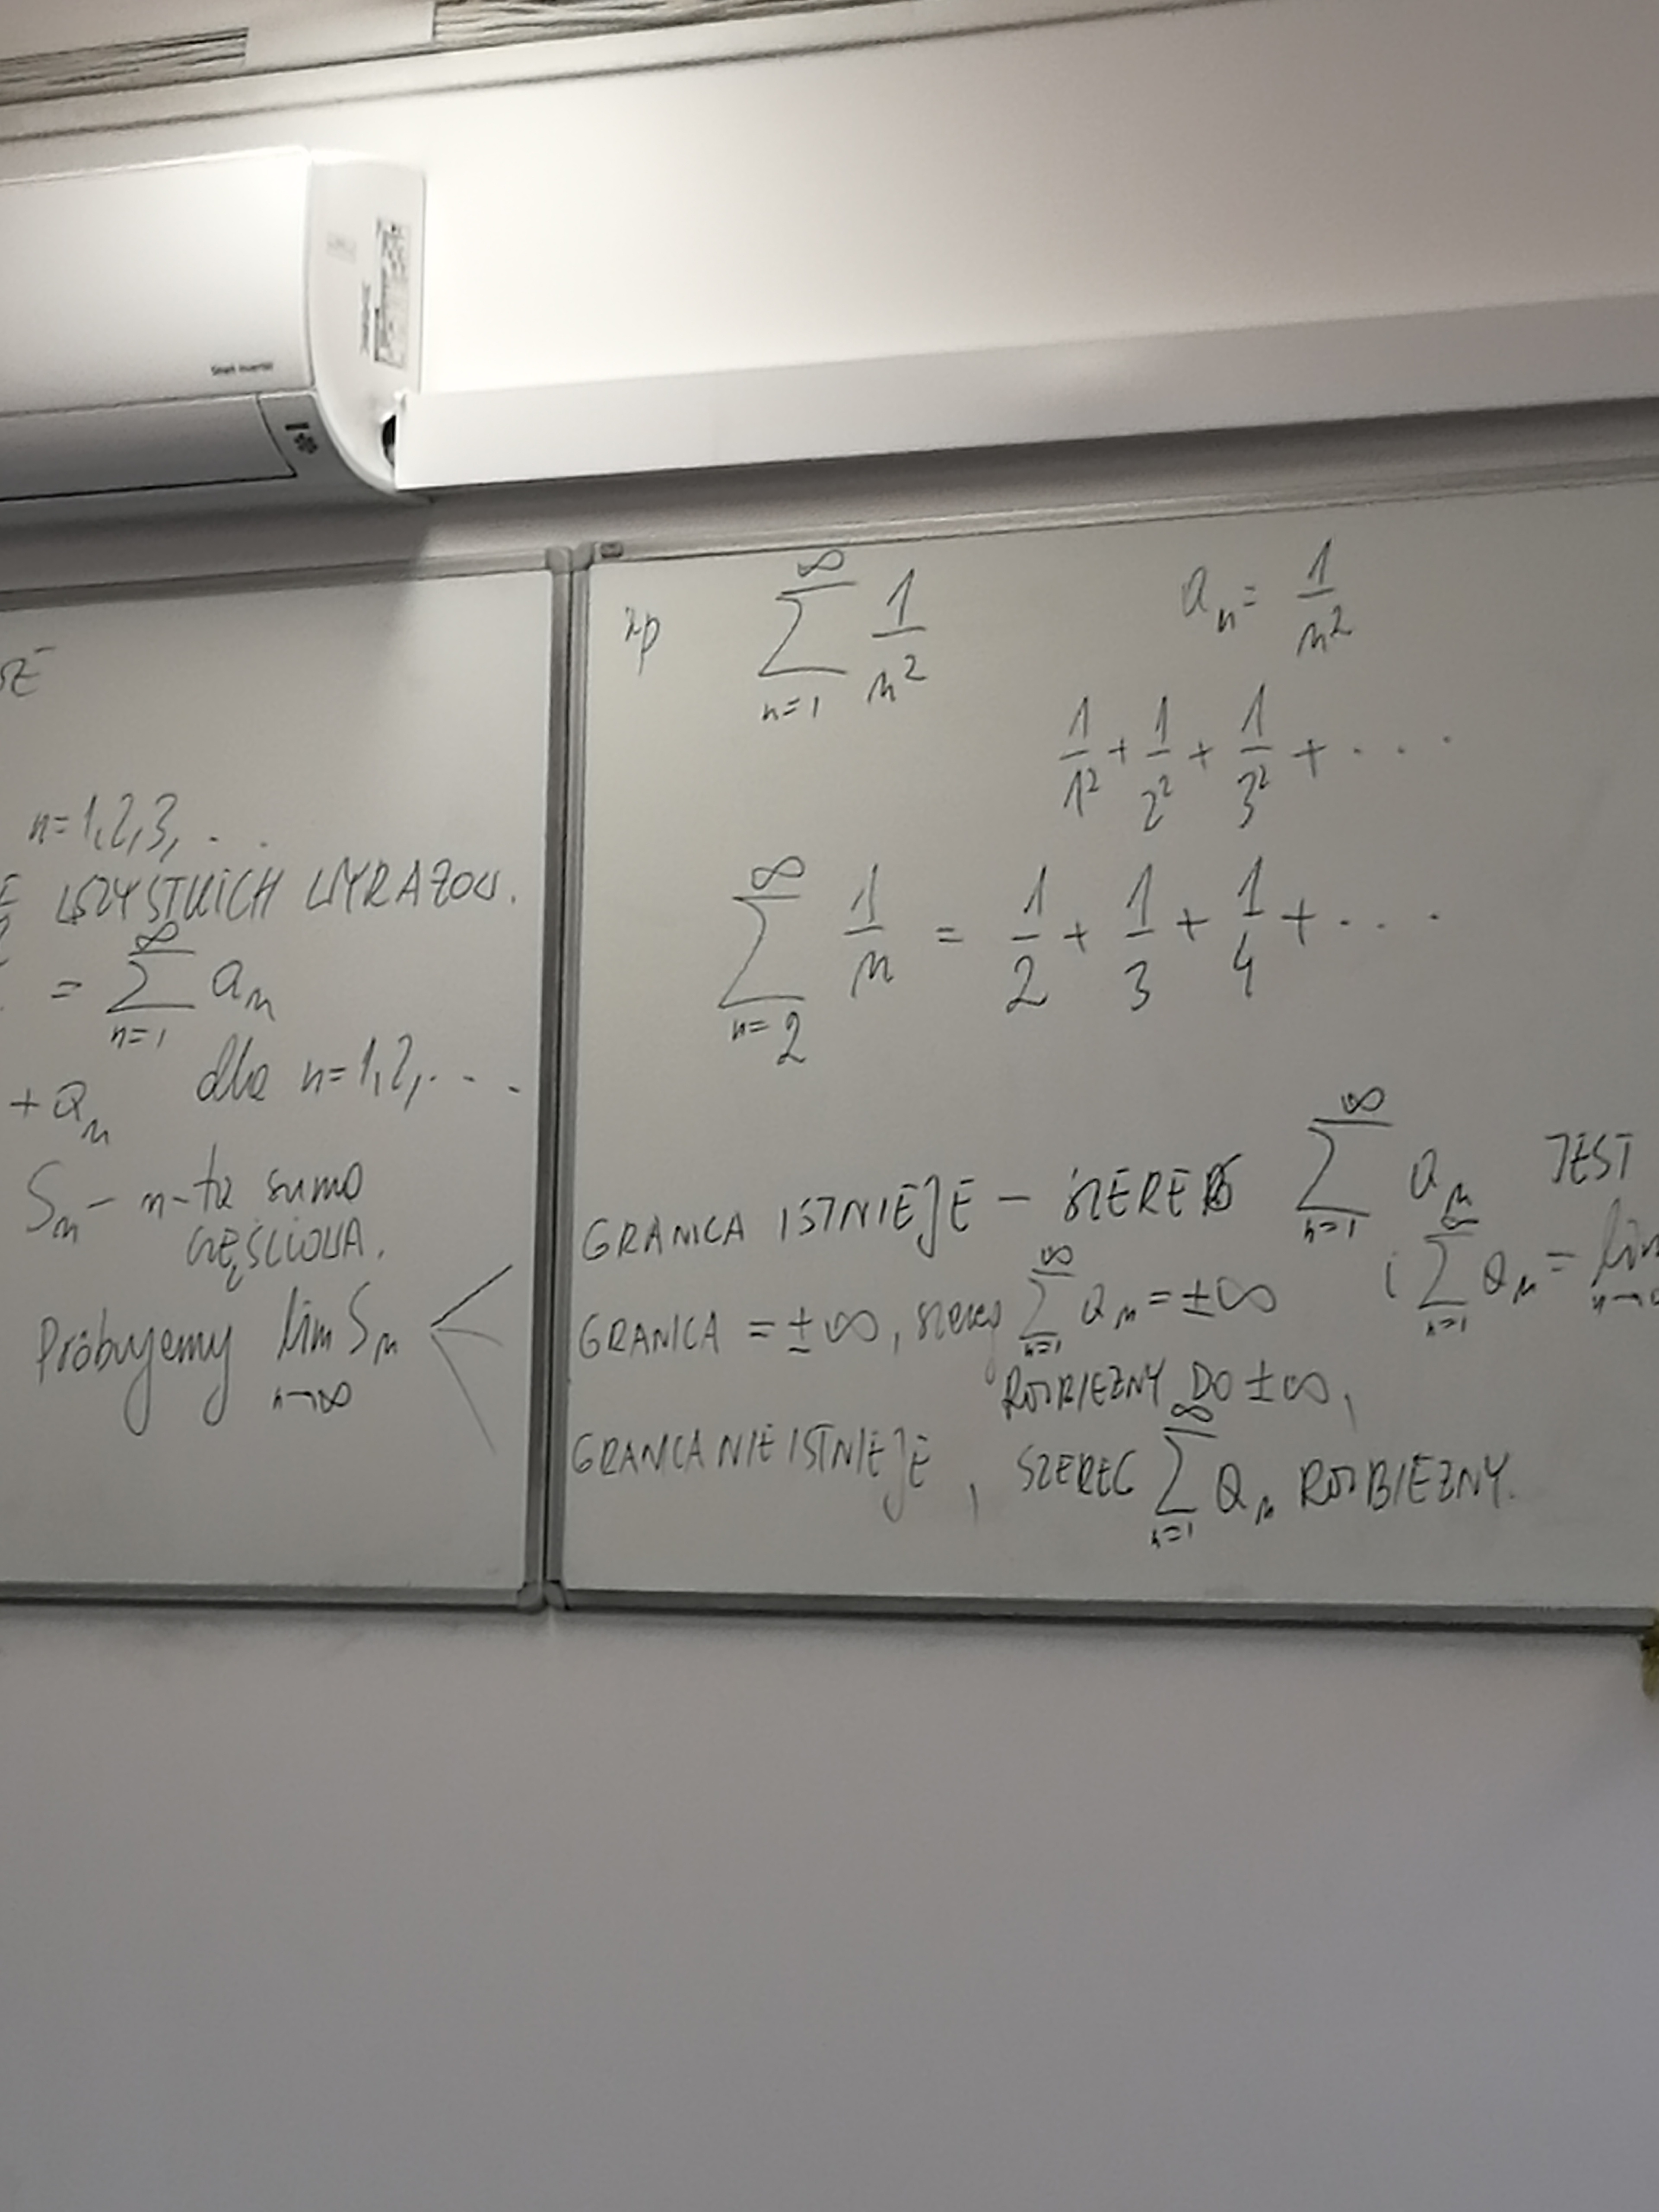 Smart Inverter
n=1,2,3, . .
WSZYSTKICH WYRAZÓW.
= \sum_{n=1}^{∞} a_n
+ a_n dla n=1,2, . . .
S_n - n-ta suma
CZĘŚCIOWA.
Próbujemy lim_{n→∞} S_n
np \sum_{n=1}^{∞} \frac{1}{n^2} a_n = \frac{1}{n^2}
\frac{1}{1^2} + \frac{1}{2^2} + \frac{1}{3^2} + . . .
\sum_{n=2}^{∞} \frac{1}{n} = \frac{1}{2} + \frac{1}{3} + \frac{1}{4} + . . .
GRANICA ISTNIEJE – SZEREG \sum_{n=1}^{∞} a_n JEST
i \sum_{n=1}^{∞} a_n = lim
GRANICA = ±∞, szereg \sum_{n=1}^{∞} a_n = ±∞
ROZBIEŻNY DO ±∞,
GRANICA NIE ISTNIEJE, SZEREG \sum_{n=1}^{∞} a_n ROZBIEŻNY.